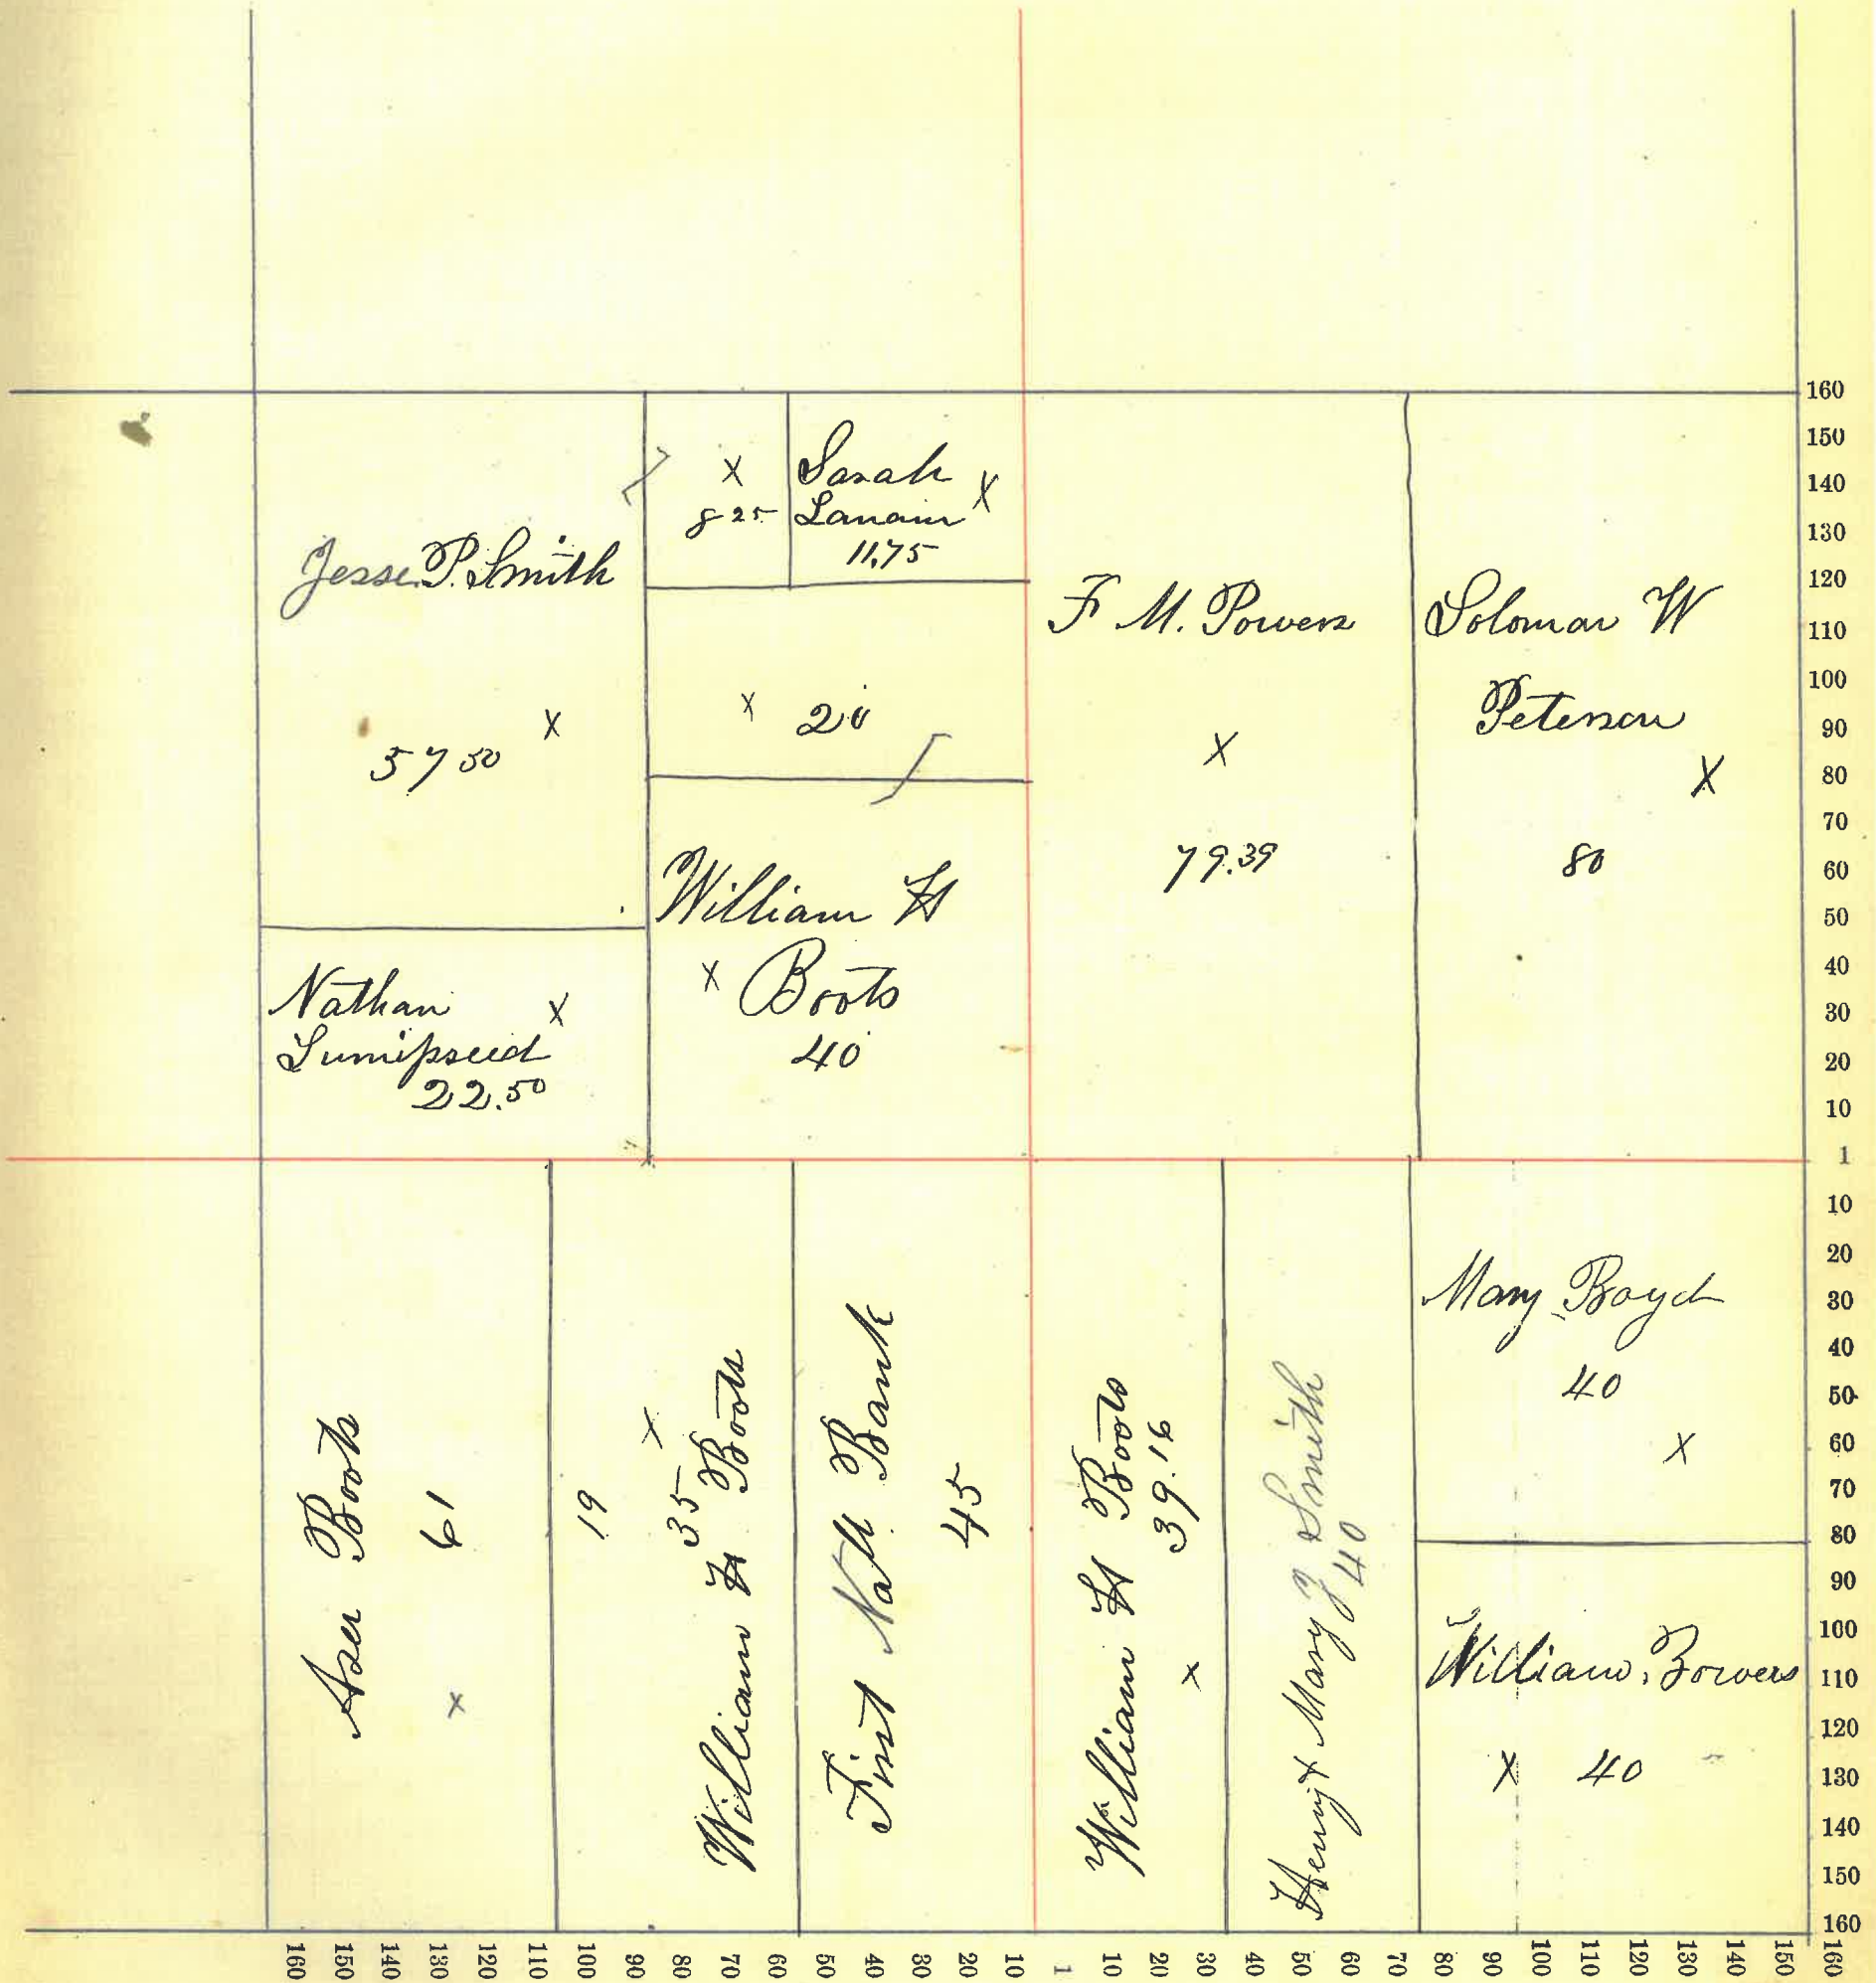 160
150
140
130
120
110
100
90
80
70
60
50
40
30
20
10
1
10
20
30
40
50
60
70
80
90
100
110
120
130
140
150
160
Jesse P. Smith
X
57 50
X
8 25
Sarah X
Lanam
11.75
X 20
F M. Powers
X
79.39
Solomon W
Peterson
X
80
Nathan X
22.50
William H
X Boots
40
Aser Boots
61
X
19
X
35
William H Boots
First Natl Bank
45
William H Boots
39.16
X
Henry & Mary J Smith
40
Mary Boyd
40
X
William
X 40
160 150 140 130 120 110 100 90 80 70 60 50 40 30 20 10 1 10 20 30 40 50 60 70 80 90 100 110 120 130 140 150 160